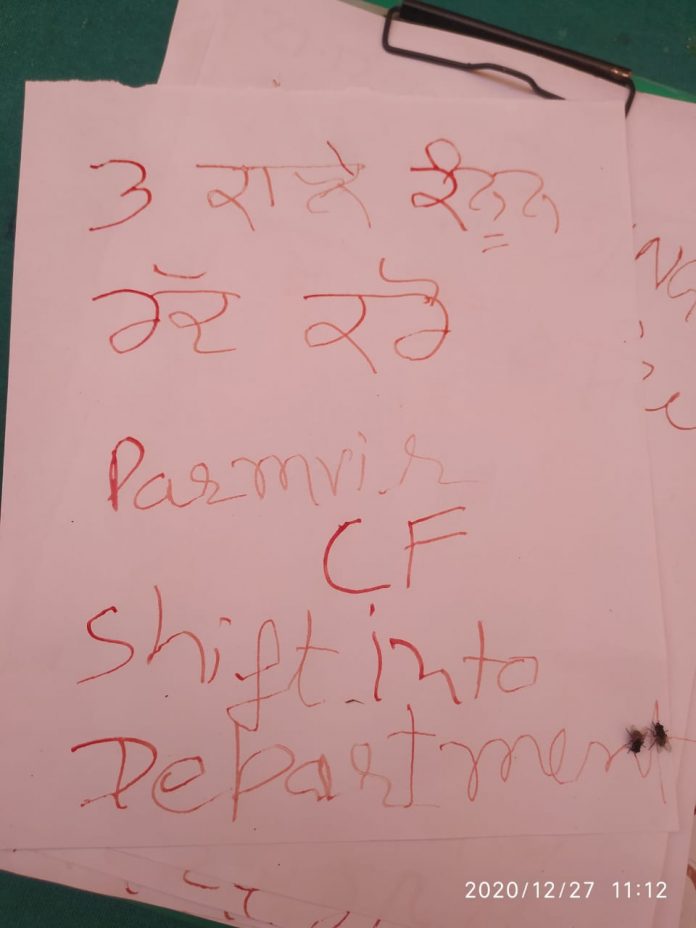 3 ਕਾਲੇ ਕੰਨੂਨ
ਰੱਦ ਕਰੋ
Parmvir
CF
Shift into
Department
2020/12/27 11:12